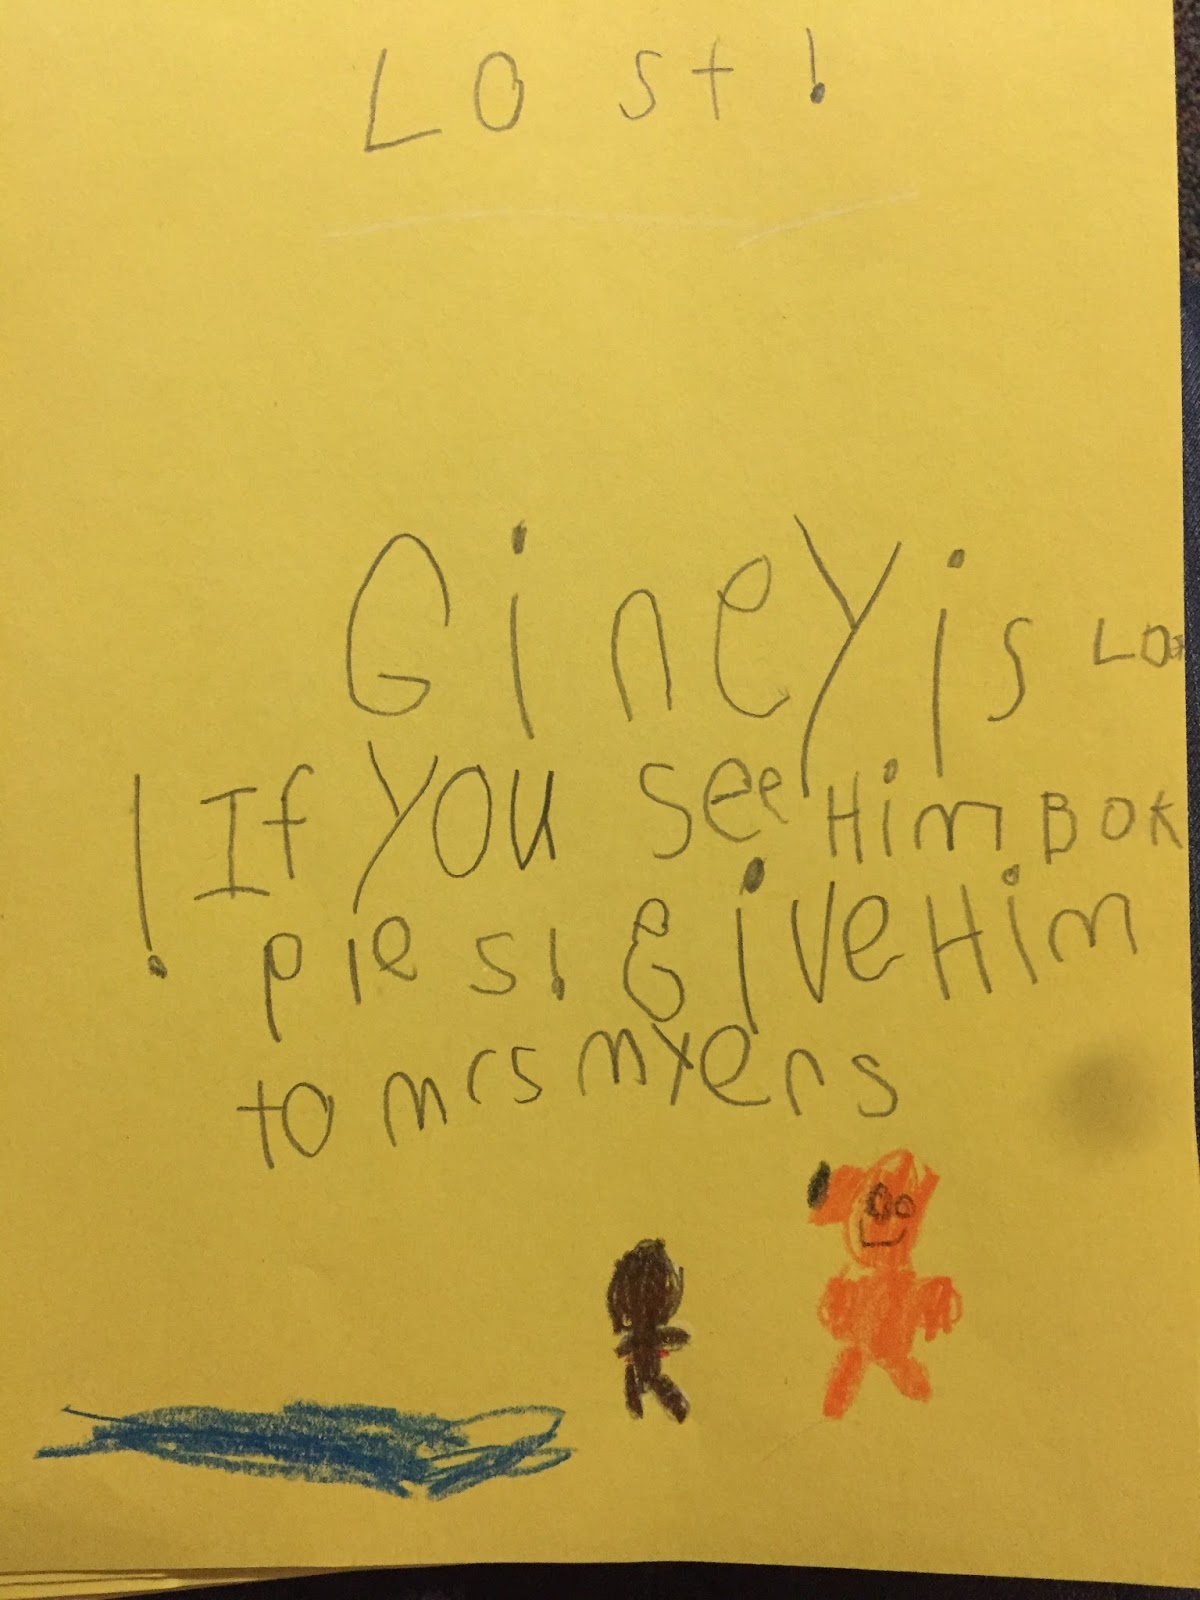 Lost!
Giney is Lost
! If you see Him BOK
pies! Give Him
to mrs myers